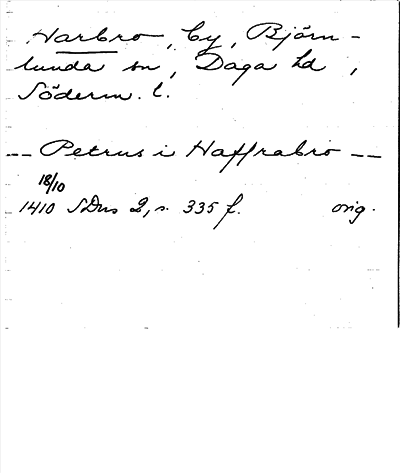 Harbro, by, Björn-
lunda sn, Daga hd,
Söderm. l.
-- Petrus i Haffrabro --
18/10
1410 SDns 2, s. 335 f. orig.